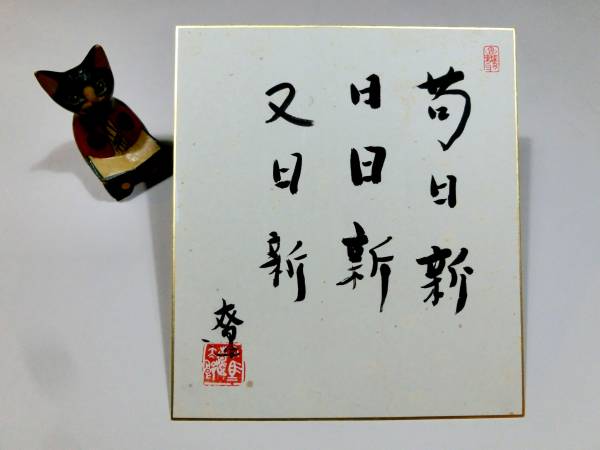 苟日新
日日新
又日新